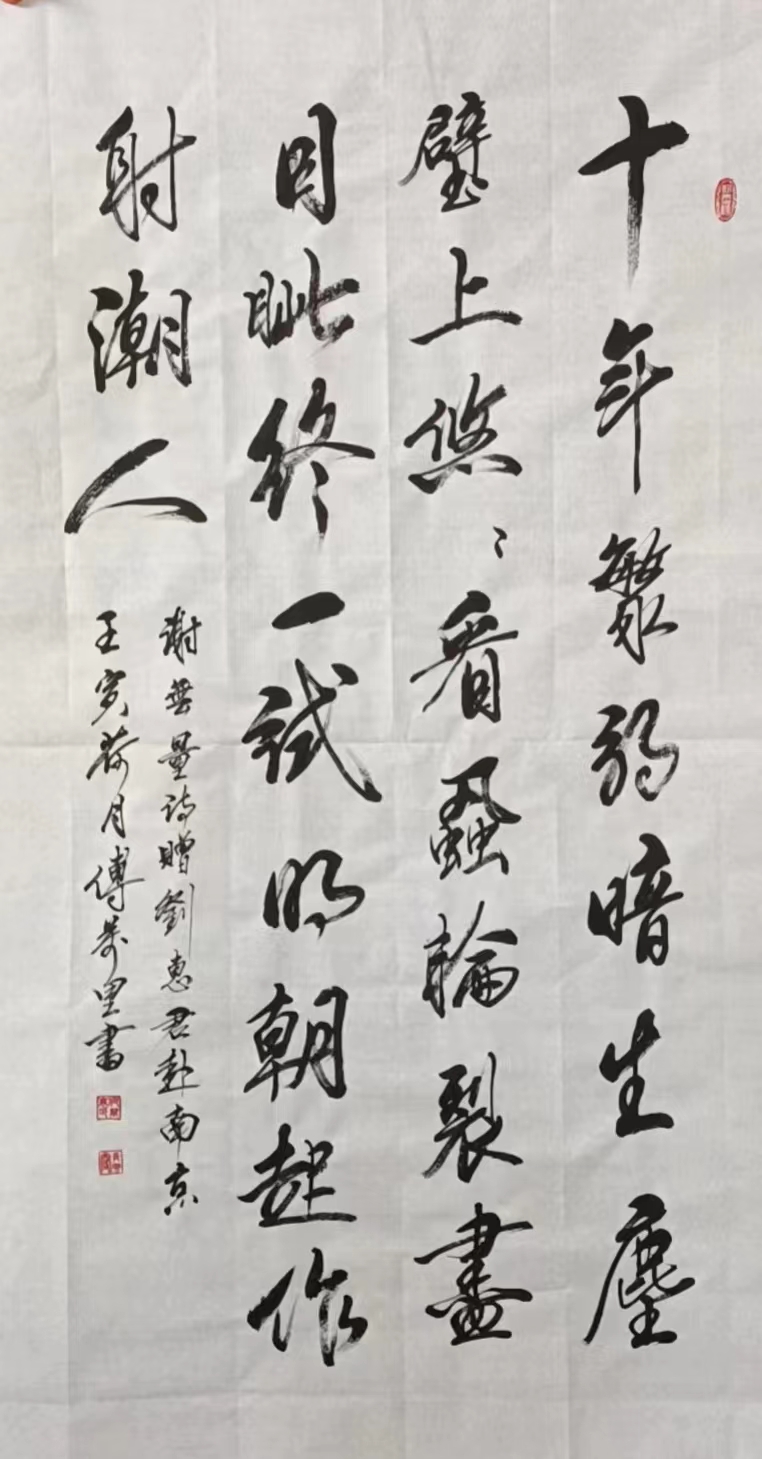 十年繁弱暗生塵
壁上悠〻看蝨輪裂盡
目眦終一試明朝起作
射潮人
謝無量詩贈劉惠君赴南京
壬寅荷月傅萬里書